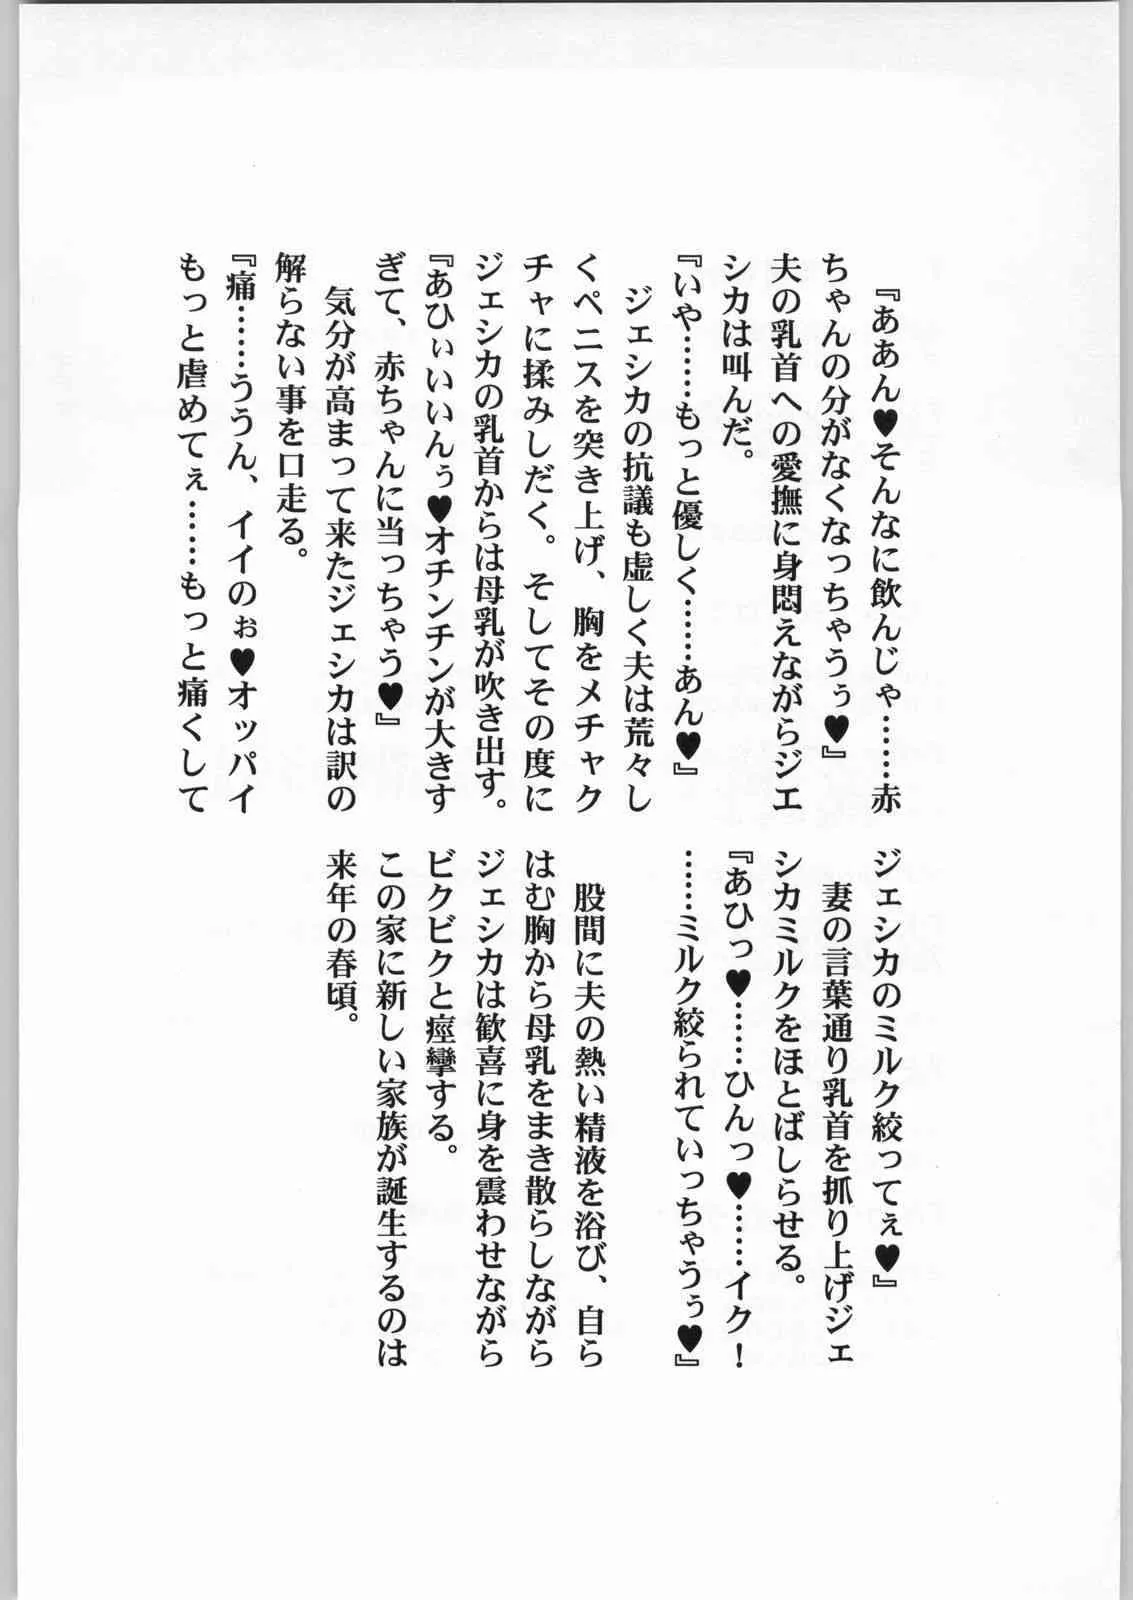 『ああん♥そんなに飲んじゃ……赤
ちゃんの分がなくなっちゃうぅ♥』
夫の乳首への愛撫に身悶えながらジエ
シカは叫んだ。
『いや……もっと優しく……あん♥』
ジェシカの抗議も虚しく夫は荒々し
くペニスを突き上げ、胸をメチャク
チャに揉みしだく。そしてその度に
ジェシカの乳首からは母乳が吹き出す。
『あひぃいいんぅ♥オチンチンが大きす
ぎて、赤ちゃんに当っちゃう♥』
気分が高まって来たジェシカは訳の
解らない事を口走る。
『痛……ううん、イイのぉ♥オッパイ
もっと虐めてぇ……もっと痛くして
ジェシカのミルク絞ってぇ♥』
妻の言葉通り乳首を抓り上げジェ
シカミルクをほとばしらせる。
『あひっ♥……ひんっ♥……イク！
……ミルク絞られていっちゃうぅ♥』
股間に夫の熱い精液を浴び、自ら
はむ胸から母乳をまき散らしながら
ジェシカは歓喜に身を震わせながら
ビクビクと痙攣する。
この家に新しい家族が誕生するのは
来年の春頃。